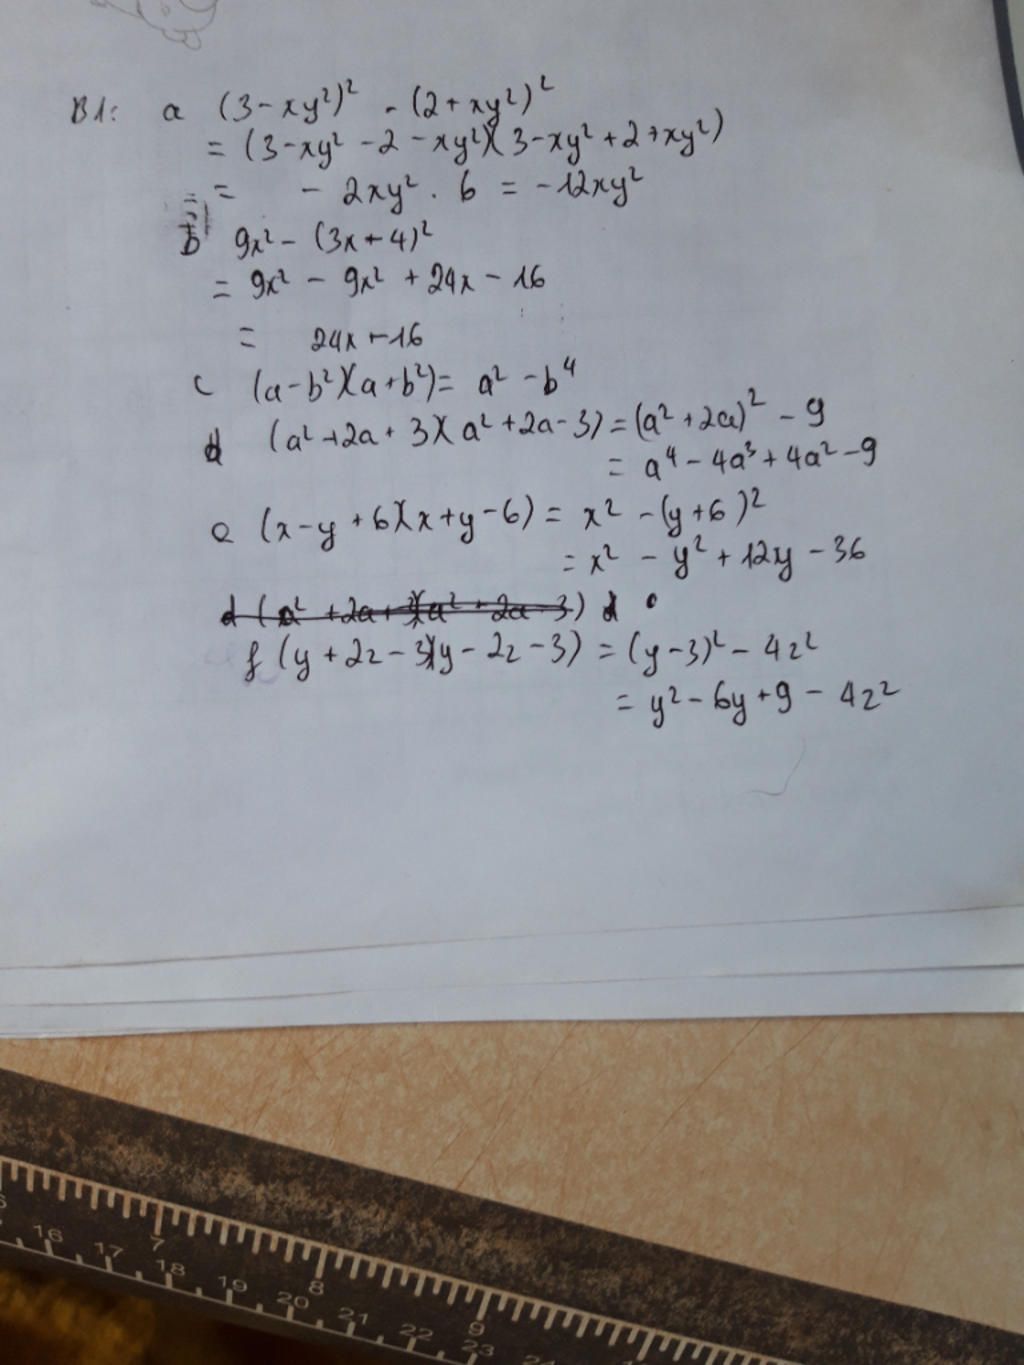 B1: a (3-xy²)² - (2+xy²)²
= (3-xy² -2 -xy²)(3-xy² +2+xy²)
= - 2xy² . 6 = -12xy²
b 9x² - (3x+4)²
= 9x² - 9x² + 24x - 16
= 24x - 16
c (a-b²)(a+b²) = a² - b⁴
d (a²+2a+3)(a²+2a-3) = (a²+2a)² - 9
= a⁴ - 4a³ + 4a² - 9
e (x-y+6)(x+y-6) = x² - (y+6)²
= x² - y² + 12y - 36
d (a²+2a+3)(a²+2a-3) d
f (y+2z-3)(y-2z-3) = (y-3)² - 4z²
= y² - 6y + 9 - 4z²
16 17 7 18 19 8 20 21 22 9 23